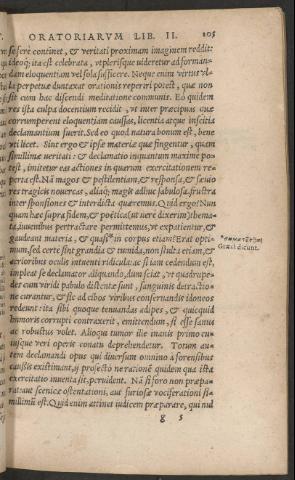 ORATORIARVM LIB. II. 105
se fere continet, & veritati proximam imaginem reddit:
ideoq; ita est celebrata, vt plerisque videretur ad forman-
dam eloquentiam vel sola sufficere. Neque enim virtus vl-
la perpetuæ duntaxat orationis reperiri potest, quæ non
sit cum hac dicendi meditatione communis. Eo quidem
res ista culpa docentium recidit, vt inter præcipuas quæ
corrumperent eloquentiam caussas, licentia atque inscitia
declamantium fuerit. Sed eo quod natura bonum est, bene
vti licet. Sint ergo & ipsæ materiæ quæ fingentur, quam
simillimæ veritati: & declamatio inquantum maxime po-
test, imitetur eas actiones in quarum exercitationem re-
perta est. Nā magos & pestilentiam, & responsa, & sæuio
res tragicis nouercas, aliaq; magis adhuc fabulosa, frustra
inter sponsiones & interdicta quæremus. Quid ergo? Nun
quam hæc supra fidem, & poëtica (vt vere dixerim) thema-
ta, iuuenibus pertractare permittemus, vt expatientur, &
gaudeant materia, & quasi in corpus eant? Erat opti-
mum, sed certe sint grandia & tumida, non stulta etiam, &
acrioribus oculis intuenti ridicula: ac si iam cedendum est,
impleat se declamator aliquando, dum sciat, vt quadrupe-
des cum viridi pabulo distentæ sunt, sanguinis detractio-
ne curantur, & sic ad cibos viribus conseruandis idoneos
redeunt: ita sibi quoque tenuandas adipes, & quicquid
humoris corrupti contraxerit, emittendum, si esse sanus
ac robustus volet. Alioqui tumor ille inanis primo cu-
iusque veri operis conatu deprehendetur. Totum au-
tem declamandi opus qui diuersum omnino à forensibus
caussis existimant, ij profecto ne rationē quidem qua ista
exercitatio inuenta sit, peruident. Nā si foro non præpa-
rat: aut scenicæ ostentationi, aut furiosæ vociferationi si-
millimū est. Quid enim attinet iudicem præparare, qui nul
g 5
Græci dicunt.